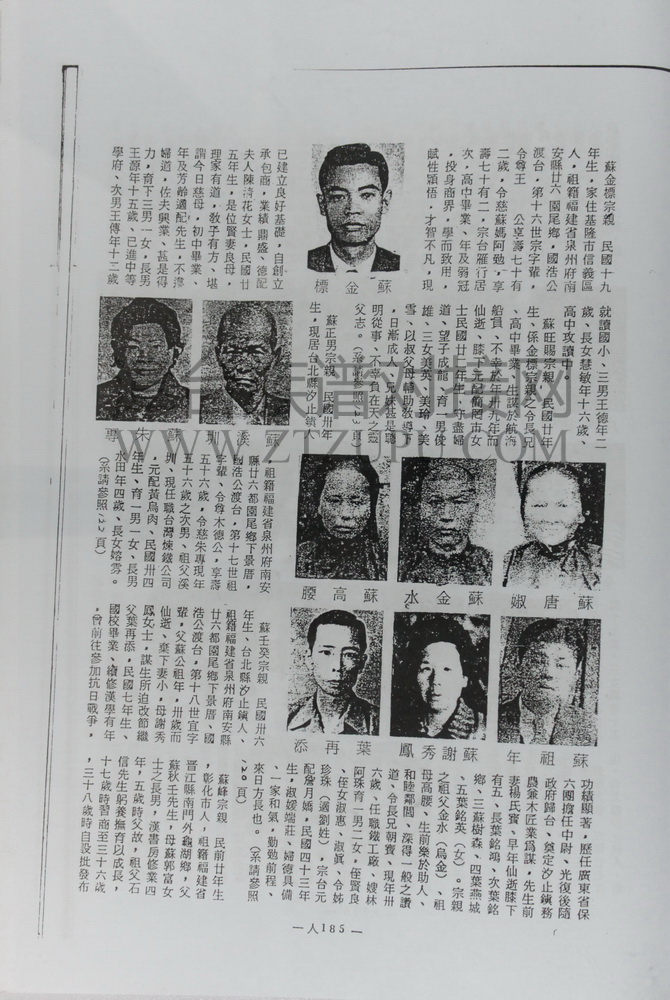 蘇金標宗親　民國十九
年生，家住基隆市信義區
人，祖籍福建省泉州府南
安縣廿六園尾鄉，國浩公
渡台，第十六世宗字輩，
令尊王　公享壽七十有
二歲，令慈蘇媽阿勉，享
壽七十有二，宗台雁行居
次，高中畢業，年及弱冠
，投身商界，學而致用，
賦性穎悟，才智不凡，現
蘇金標
已建立良好基礎，自創立
承包商，業績鼎盛、德配
夫人陳清花女士，民國廿
五年生，是位賢妻良母，
理家有道，教子有方、堪
謂今日慈母，初中畢業、
年及芳齡適配先生，不渾
婦道，佐夫興業、甚是得
力，育下三男一女，長男
王源年十五歲、已進中等
學府、次男王傳年十二歲
就讀國小、三男王德年二
歲、長女慧敏年十六歲、
高中攻讀中。
蘇旺賜宗親、民國廿年
生、係金標宗親之令長兄
、高中畢業、生謀於航海
船員、不幸於年卅九年而
仙逝、膝下元配簡罔市女
士民國廿三年生、守盡婦
道、望子成龍、育一男俊
雄、三女美英、美玲、美
雪、以叔父母輔助教導下
，日漸成人、兄妹甚是聰
明從事、不幸負在天之靈
父志。（系請參照　頁）
蘇正男宗親、民國卅年
生，現居台北縣汐止鎮人
蘇溪圳
蘇朱專
，祖籍福建省泉州府南安
縣廿六都園尾鄉下景厝，
國浩公渡台，第十七世祖
字輩，令尊木德公，享壽
五十六歲，令慈朱專現年
五十六歲之次男、祖父溪
圳、現任職台灣煉鐵公司
，元配黃烏肉、民國卅四
年生、育一男一女、長男
水田年四歲、長女嫆雰。
（系請參照　頁）
蘇唐娰
蘇金水
蘇高腰
蘇祖年
蘇謝秀鳳
葉再添
蘇壬癸宗親　民國卅六
年生、台北縣汐止鎮人、
祖籍福建省泉州府南安縣
廿六都園尾鄉下景厝、國
浩公渡台，第十八世宜字
輩，父蘇公祖年，卅歲而
仙逝、棄下妻小，母謝秀
鳳女士，謀生所迫改節繼
父葉再添，民國七年生、
國校畢業、續修漢學有年
，曾前往參加抗日戰爭，
功積顯著，歷任廣東省保
六團擔任中尉、光復後隨
政府歸台、奠定汐止鎮務
農兼木匠業爲謀，先生前
妻楊氏賓、早年仙逝膝下
有五、長葉銘鴻、次葉銘
鄉、三蘇樹森、四葉燕城
、五葉銘英（女）。宗親
之祖父金水（烏金）、祖
母高腰、生前樂於助人、
和睦鄰閭、深得一般之讚
道、令長兄朝賓、現年卅
六歲、任職鐵工廠、嫂林
阿珠育一男二女，侄賢良
、侄女淑惠、淑眞、令姊
珍珠（適劉姓）宗台元
配詹月嬌，民國四十三年
生，淑嫒端莊、婦德具備
、一家和氣，勤勉前程、
來日方長也。（系請參照
頁）
蘇峰宗親　民前廿年生
，彰化市人，祖籍福建省
晋江縣南門外龜湖鄉，父
蘇秋壬先生，母蘇郭富女
士之長男，漢書房修業四
年，五歲時父故，祖父石
信先生躬養撫育以成長，
十七歲時習商至三十六歲
，三十八歲時自設批發布
—人185—
台族谱对接网
WWW.ZTZUPU.COM